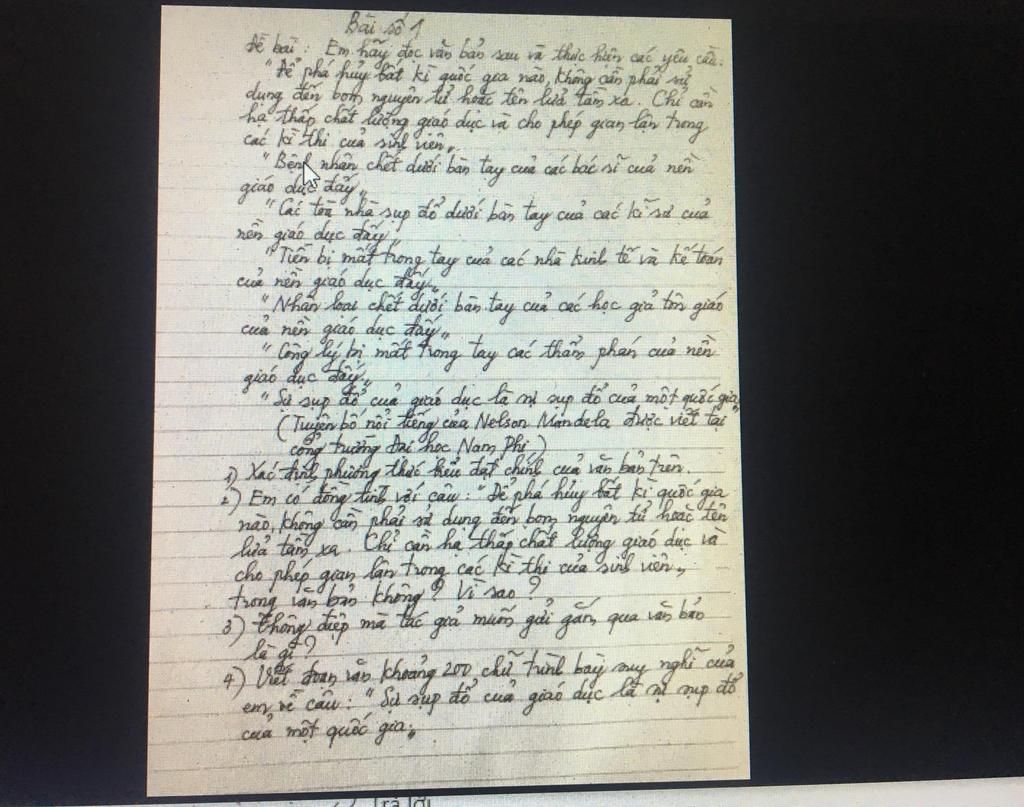 Bài số 1
Đề bài : Em hãy đọc văn bản sau và thực hiện các yêu cầu:
"Để phá hủy bất kì quốc gia nào, không cần phải sử
dụng đến bom nguyên tử hoặc tên lửa tầm xa. Chỉ cần
hạ thấp chất lượng giáo dục và cho phép gian lận trong
các kì thi của sinh viên„
"Bệnh nhân chết dưới bàn tay của các bác sĩ của nền
giáo dục đấy„
"Các toà nhà sụp đổ dưới bàn tay của các kĩ sư của
nền giáo dục đấy„
"Tiền bị mất trong tay của các nhà kinh tế và kế toán
của nền giáo dục đấy„
"Nhân loại chết dưới bàn tay của các học giả tôn giáo
của nền giáo dục đấy„
"Công lý bị mất trong tay các thẩm phán của nền
giáo dục đấy„
"Sự sụp đổ của giáo dục là sự sụp đổ của một quốc gia„
(Tuyên bố nổi tiếng của Nelson Mandela được viết tại
cổng trường Đại học Nam Phi)
1) Xác định phương thức biểu đạt chính của văn bản trên.
2) Em có đồng tình với câu : "Để phá hủy bất kì quốc gia
nào, không cần phải sử dụng đến bom nguyên tử hoặc tên
lửa tầm xa. Chỉ cần hạ thấp chất lượng giáo dục và
cho phép gian lận trong các kì thi của sinh viên„
trong văn bản không ? Vì sao ?
3) Thông điệp mà tác giả muốn gửi gắm qua văn bản
là gì ?
4) Viết đoạn văn khoảng 200 chữ trình bày suy nghĩ của
em về câu : "Sự sụp đổ của giáo dục là sự sụp đổ
của một quốc gia„
Trả lời